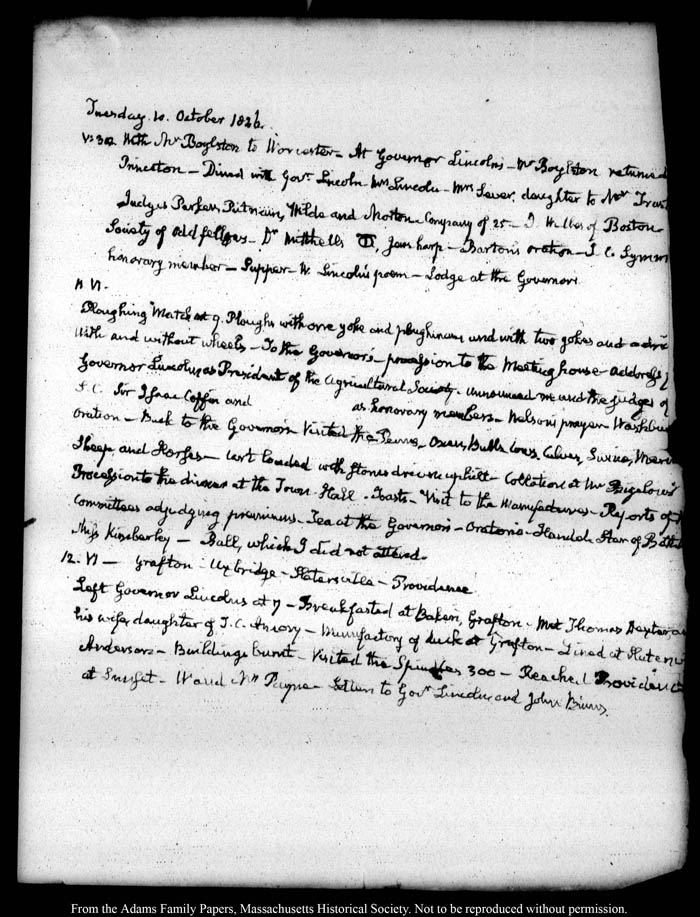 Tuesday. 10. October 1826.
V:30. With Mr Boylston to Worcester – At Governor Lincoln's – Mr Boylston returned
Princeton – Dined with Govr. Lincoln Mrs Lincoln – Mrs Sever, daughter to Mr
Judges Parker, Putnam, Wilde and Morton – Company of 25 – of Boston
Society of odd fellows – Dr Mitchells jews harp – Barton's oration –
honorary member – Supper – W. Lincoln's poem – Lodge at the Governors
VI.
Ploughing Match at 9. Ploughs with one yoke and ploughman, and with two yokes and a
With and without wheels – To the Governor's – procession to the Meeting house address
Governor Lincoln, as President of the Agricultural Society. announced me and the judges of
S.C. Sir Isaac Coffin and as honorary members – Nelson's prayer –
oration – Back to the Governors Visited the Penns, Oxen, Bulls Cows, Calves, Swine,
Sheep and Horses – Cart loaded with stones driven uphill – Collation at Mr Bigelow's
Procession to the dinner at the Town-Hall – Toasts – Visit to the Manufactures – Reports of
Committees adjudging premiums – Tea at the Governors – Oratorio –
Miss Kimberley – Ball, which I did not attend.
12. VI – Grafton – Uxbridge – Slatersville – Providence
Left Governor Lincolns at 7 – Breakfasted at Grafton – Met Thomas Dexter
his wife, daughter of T.C. Amory – Manufactory of duck at Grafton – Dined at
Andersons – Buildings burnt – Visited the Spindles 300 – Reached
at Sunset – Mr Payne – to Govr Lincoln and John Binns.
From the Adams Family Papers, Massachusetts Historical Society. Not to be reproduced without permission.